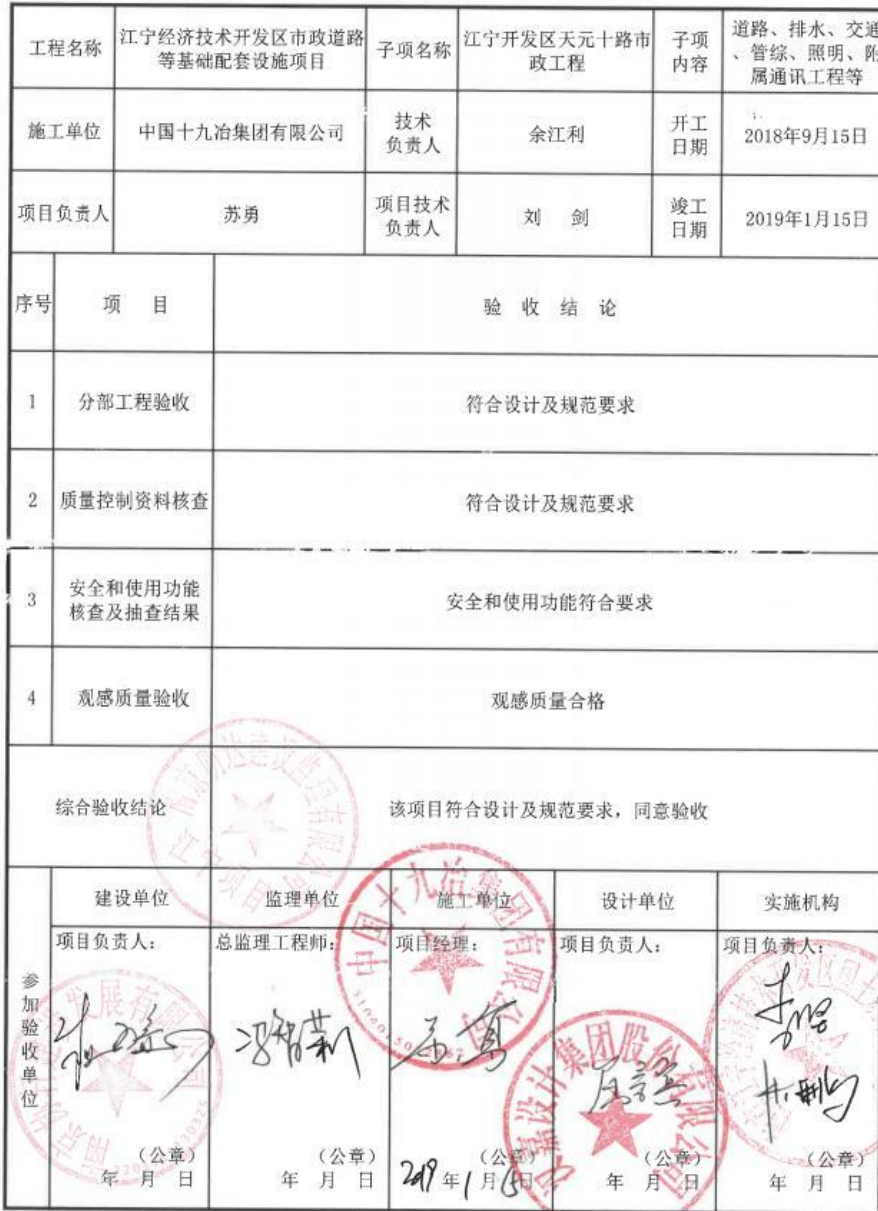 工程名称
江宁经济技术开发区市政道路
等基础配套设施项目
子项名称
江宁开发区天元十路市
政工程
子项
内容
道路、排水、交通
、管综、照明、附
属通讯工程等
施工单位
中国十九冶集团有限公司
技术
负责人
余江利
开工
日期
2018年9月15日
项目负责人
苏勇
项目技术
负责人
刘 剑
竣工
日期
2019年1月15日
序号
项 目
验 收 结 论
1
分部工程验收
符合设计及规范要求
2
质量控制资料核查
符合设计及规范要求
3
安全和使用功能
核查及抽查结果
安全和使用功能符合要求
4
观感质量验收
观感质量合格
综合验收结论
该项目符合设计及规范要求，同意验收
参加验收单位
建设单位
监理单位
施工单位
设计单位
实施机构
项目负责人：
总监理工程师：
项目经理：
项目负责人：
项目负责人：
中国十九冶集团有限公司
设计集团股份有限公司
（公章）
年 月 日
（公章）
年 月 日
（公章）
2019年1月15日
（公章）
年 月 日
（公章）
年 月 日